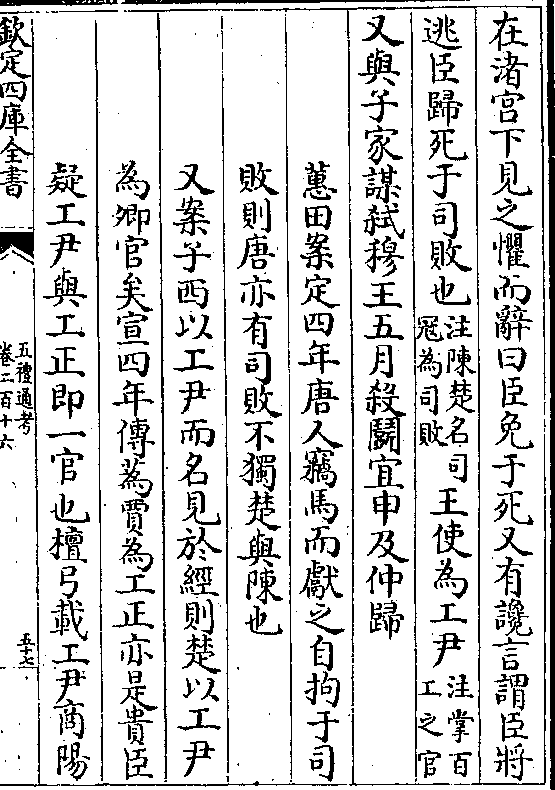 在渚宫下見之懼而辭曰臣免于死又有讒言謂臣將
逃臣歸死于司敗也注陳楚名司冦為司敗王使為工尹注掌百工之官
又與子家謀弑穆王五月殺鬭宜申及仲歸
蕙田案定四年唐人竊馬而獻之自拘于司
敗則唐亦有司敗不獨楚與陳也
又案子西以工尹而名見於經則楚以工尹
為卿官矣宣四年傳蒍賈為工正亦是貴臣
疑工尹與工正即一官也檀弓載工尹商陽
欽定四庫全書
五禮通考
卷二百十六
五十七